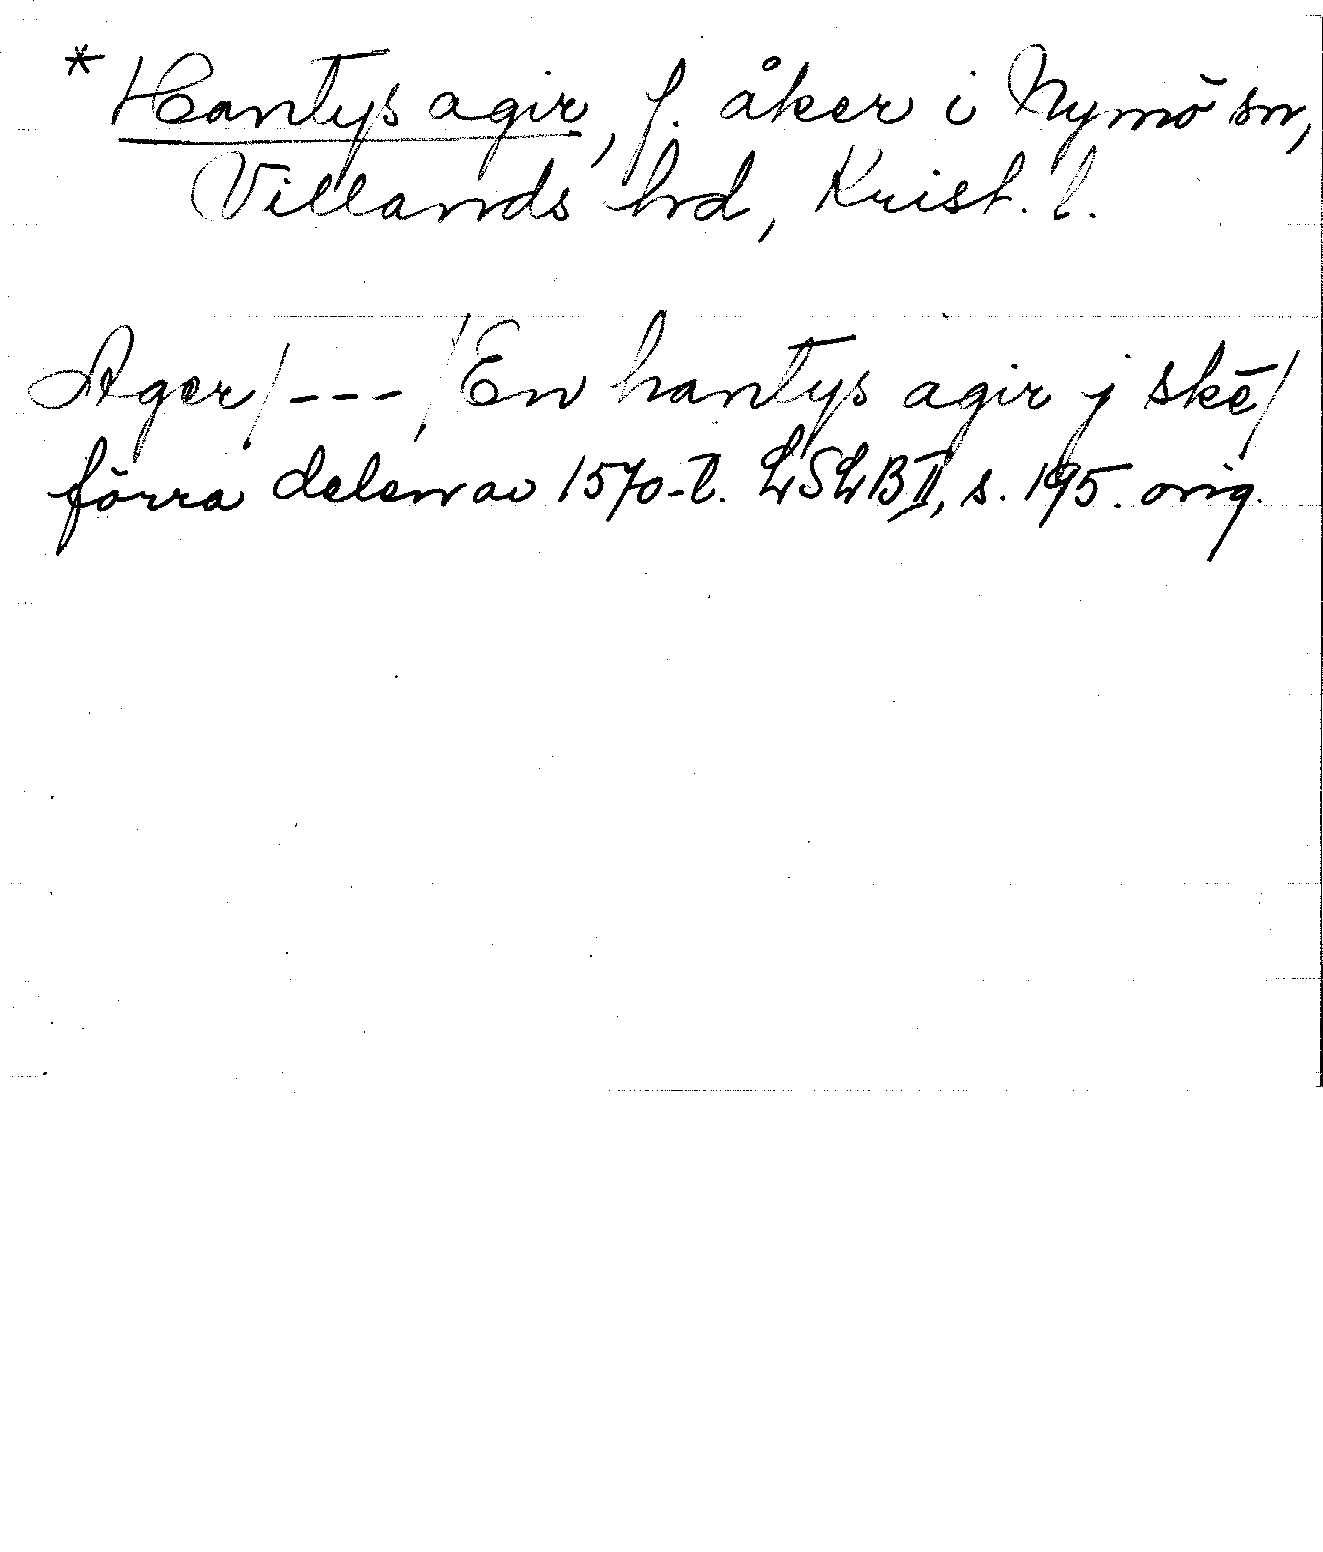 * Hantys agir, f. åker i Nymö sn,
Villands hd, Krist. l.
Ager/---/En hantys agir j skē/
förra delen av 1570-t. LSLB II, s. 195. orig.